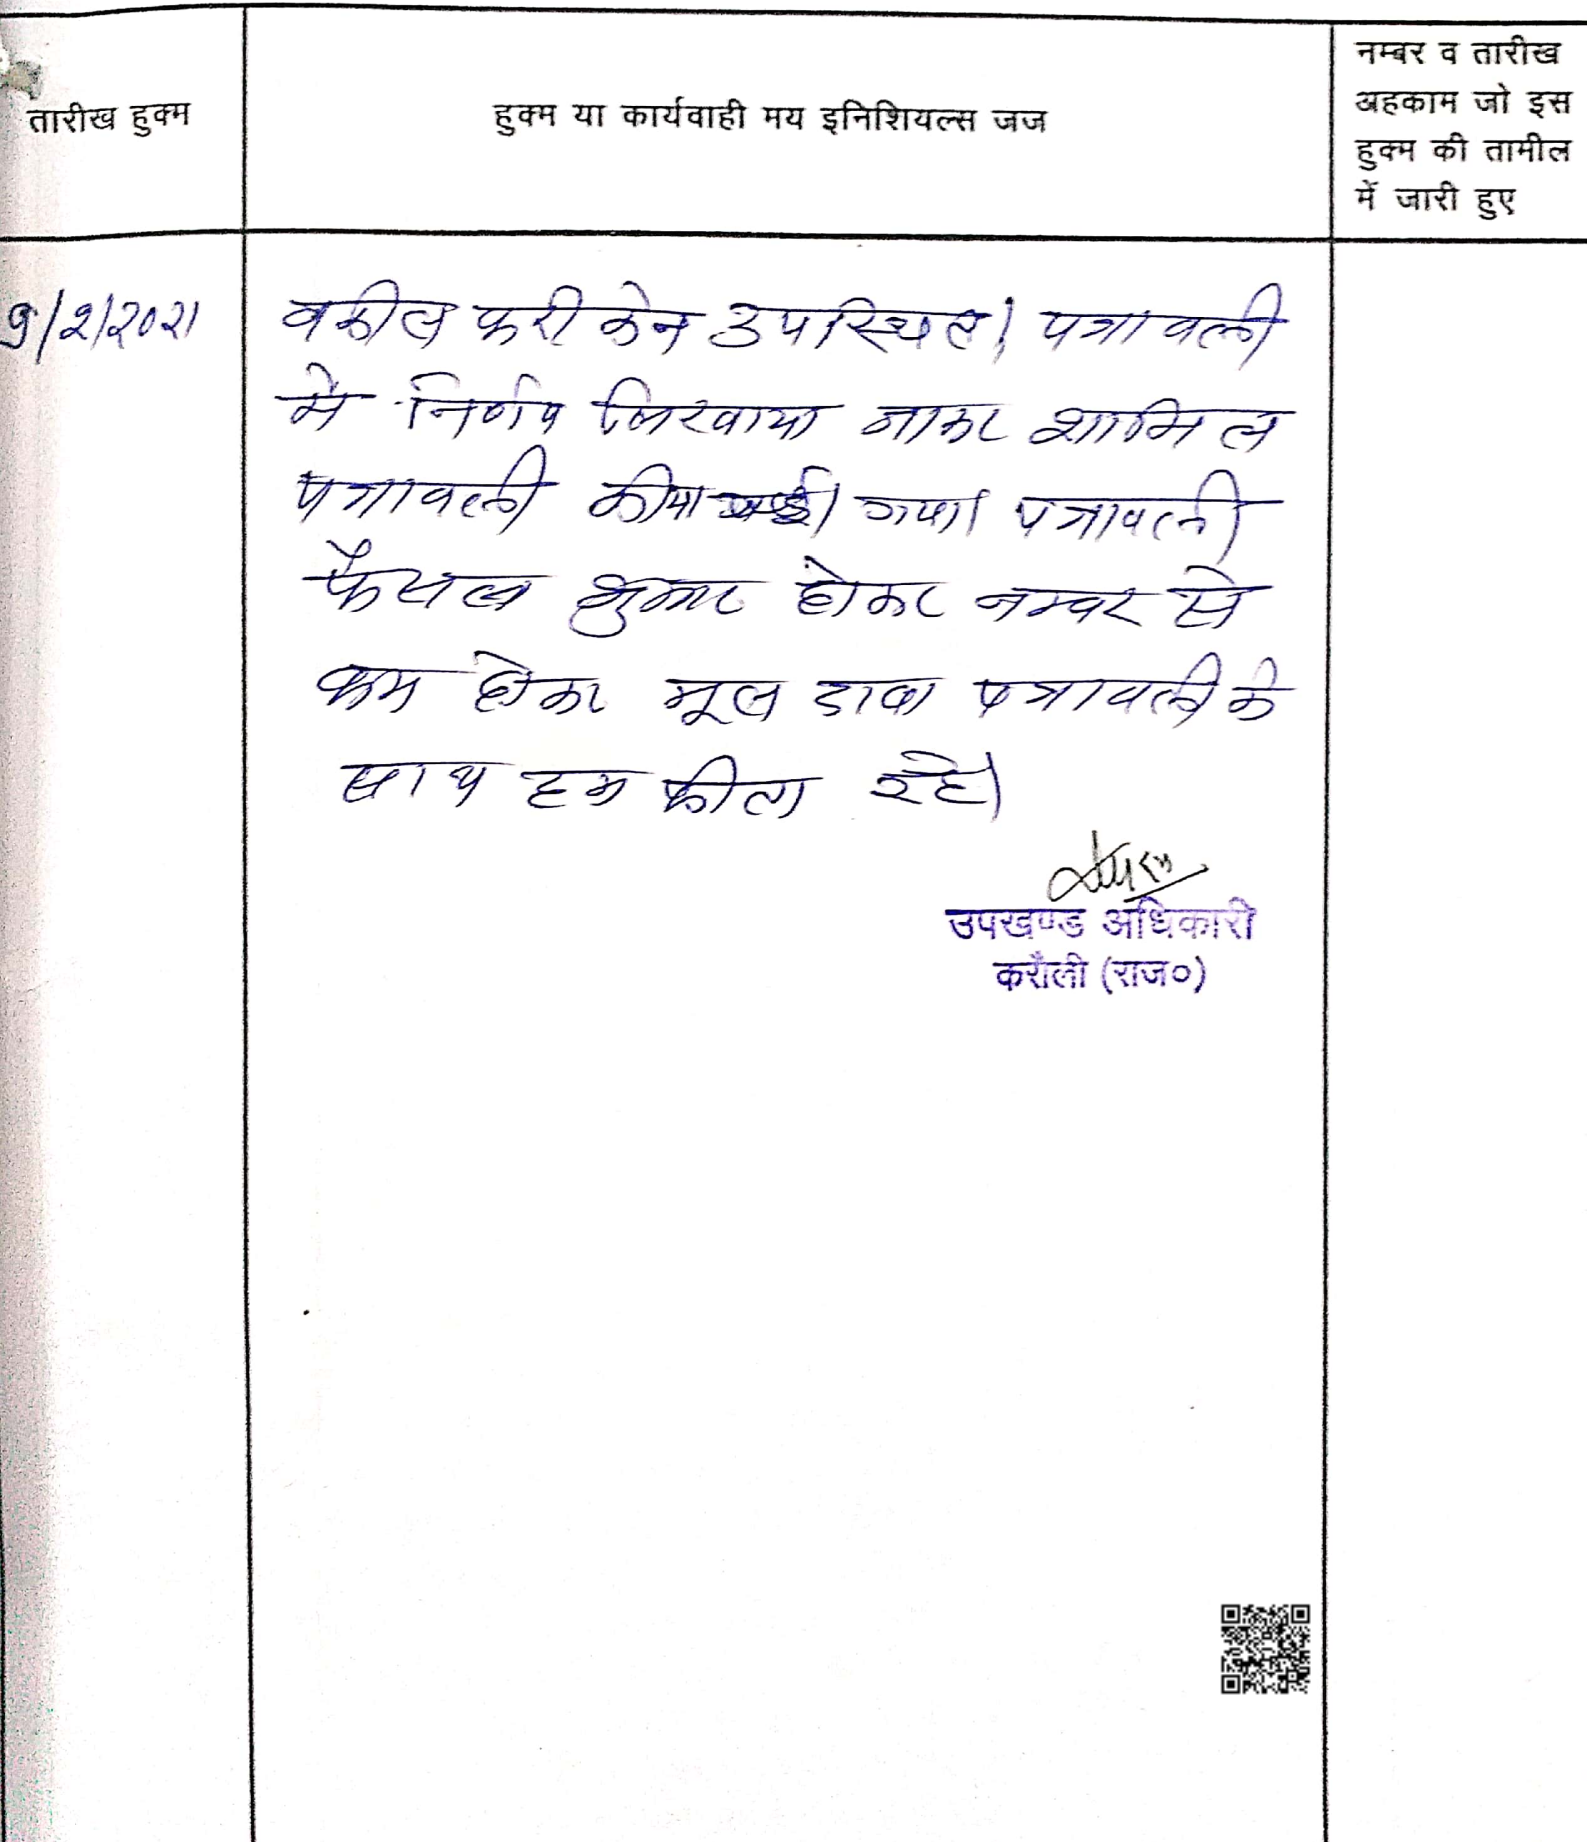 तारीख हुक्म
हुक्म या कार्यवाही मय इनिशियल्स जज
नम्बर व तारीख
अहकाम जो इस
हुक्म की तामील
में जारी हुए
9/2/2021
वकील फरीकेन उपस्थित। पत्रावली
मे निर्णय लिखवाया जाकर शामिल
पत्रावली कीया गया। पत्रावली
फैसल शुमार होकर नम्बर से
कम होकर मूल दावा पत्रावली के
साथ हम फीता रहे।
उपखण्ड अधिकारी
करौली (राज०)